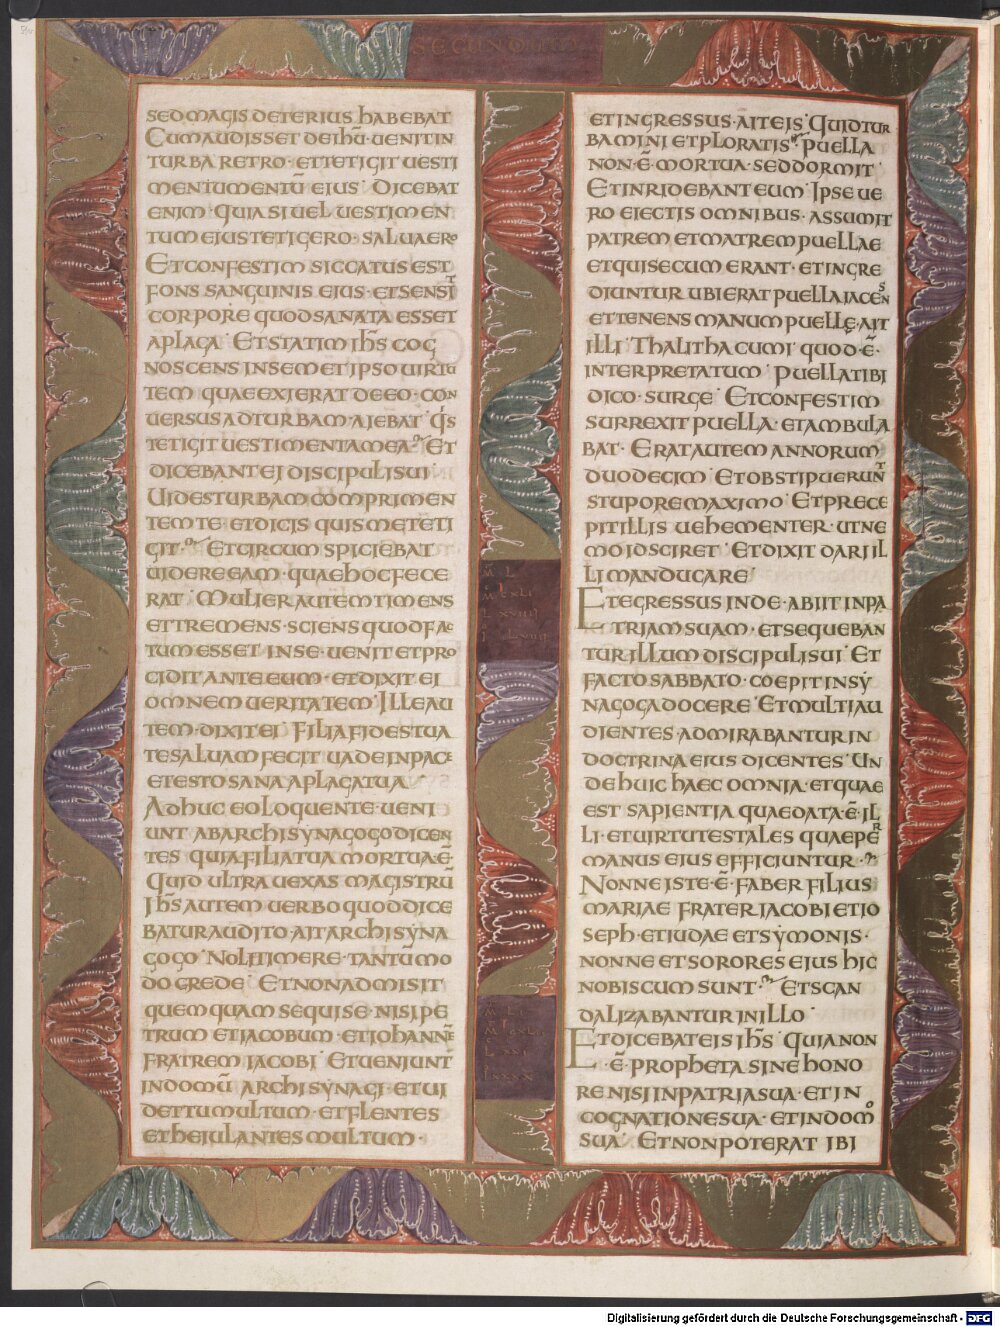 SECUNDUM
SEDMAGIS DETERIUS HABEBAT
CUMAUDISSET DEIHU· UENITIN
TURBA RETRO· ETTETIGIT UESTI
MENTUMENTŪ EIUS· DICEBAT
ENIM· QUIASIUEL UESTIMEN
TUM EIUSTETIGERO· SALUAERO
ETCONFESTIM SICCATUS EST
FONS SANGUINIS EIUS· ETSENSIT
CORPORE QUODSANATA ESSET
APLAGA· ETSTATIM IHS COG
NOSCENS INSEMETIPSO UIRTU
TEM QUAEEXIERAT DEEO· CON
UERSUS ADTURBAM· AIEBAT· QS
TETIGIT UESTIMENTAMEA· ET
DICEBANTEI DISCIPULISUI
UIDESTURBAM COMPRIMEN
TEMTE· ETDICIS QUISMETETI
GIT· ETCIRCUM SPICIEBAT
UIDEREEAM· QUAEHOCFECE
RAT· MULIER AUTEMTIMENS
ETTREMENS· SCIENS QUODFAC
TUM ESSET INSE· UENIT ETPRO
CIDIT ANTE EUM· ETDIXIT EI
OMNEM UERITATEM· ILLEAU
TEM· DIXITEI· FILIAFIDESTUA
TESALUAM FECIT UADEINPACE
ETESTOSANA APLAGATUA
ADHUC EOLOQUENTE· UENI
UNT ABARCHISYNAGOGODICEN
TES QUIAFILIATUA MORTUAĒ·
QUID ULTRA UEXAS MAGISTRŪ
IHS AUTEM UERBO QUODDICE
BATURAUDITO· AITARCHISYNA
GOGO· NOLITIMERE· TANTUMO
DO CREDE· ETNONADMISIT
QUEMQUAM SEQUISE· NISIPE
TRUM ETIACOBUM· ETIOHANNE
FRATREM IACOBI· ETUENIUNT
INDOMŪ ARCHISYNAGI· ETUI
DETTUMULTUM· ETFLENTES
ETHEIULANTES MULTUM·
ETINGRESSUS· AITEIS· QUIDTUR
BAMINI ETPLORATIS· PUELLA
NON·Ē·MORTUA· SEDDORMIT
ETINRIDEBANTEUM· IPSE UE
RO EIECTIS OMNIBUS· ASSUMIT
PATREM ETMATREMPUELLAE
ETQUISECUM ERANT· ETINGRE
DIUNTUR UBIERAT PUELLAIACENS
ETTENENS MANUMPUELLĘ· AIT
ILLI· THALITHACUMI· QUOD·Ē·
INTERPRETATUM· PUELLATIBI
DICO· SURGE· ETCONFESTIM
SURREXIT PUELLA· ETAMBULA
BAT· ERATAUTEM ANNORUM
DUODECIM· ETOBSTIPUERUNT
STUPOREMAXIMO· ETPRECE
PITILLIS UEHEMENTER· UTNE
MOIDSCIRET· ETDIXIT DARIIL
LIMANDUCARE·
ETEGRESSUS INDE· ABIITINPA
TRIAMSUAM· ETSEQUEBAN
TURILLUM DISCIPULISUI· ET
FACTOSABBATO· COEPITINSY
NAGOGADOCERE· ETMULTIAU
DIENTES ADMIRABANTURIN
DOCTRINAEIUS DICENTES· UN
DEHUIC HAEC OMNIA· ETQUAE
EST SAPIENTIA QUAEDATA·Ē·IL
LI· ETUIRTUTESTALES QUAEPER
MANUS EIUS EFFICIUNTUR·
NONNE ISTE·Ē·FABER FILIUS
MARIAE FRATER IACOBI ETIO
SEPH· ETIUDAE ETSYMONIS·
NONNE ET SORORES EIUS HIC
NOBISCUM SUNT· ETSCAN
DALIZABANTUR INILLO
ETDICEBATEIS IHS· QUIANON
·Ē·PROPHETA SINE HONO
RE NISI INPATRIASUA· ETIN
COGNATIONESUA· ETINDOMO
SUA· ETNONPOTERAT IBI
Digitalisierung gefördert durch die Deutsche Forschungsgemeinschaft - DFG